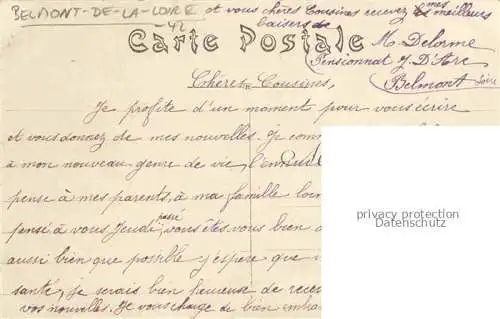 BELMONT-DE-LA-LOIRE
42
et vous chères Cousines recevez mes meilleurs
baisers de
M. Delorme
Pensionnat J. D'Arc
Belmont Loire
Carte Postale
Chères Cousines,
Je profite d'un moment pour vous écrire
et vous donner de mes nouvelles. Je comm
à mon nouveau genre de vie, l'ennui
pense à mes parents, à ma famille loin
pensé à vous Jeudi passé, vous êtes vous bien a
aussi bien que possible j'espère que
santé, je serais bien heureuse de rece
vos nouvelles. Je vous charge de bien embra
privacy protection
Datenschutz